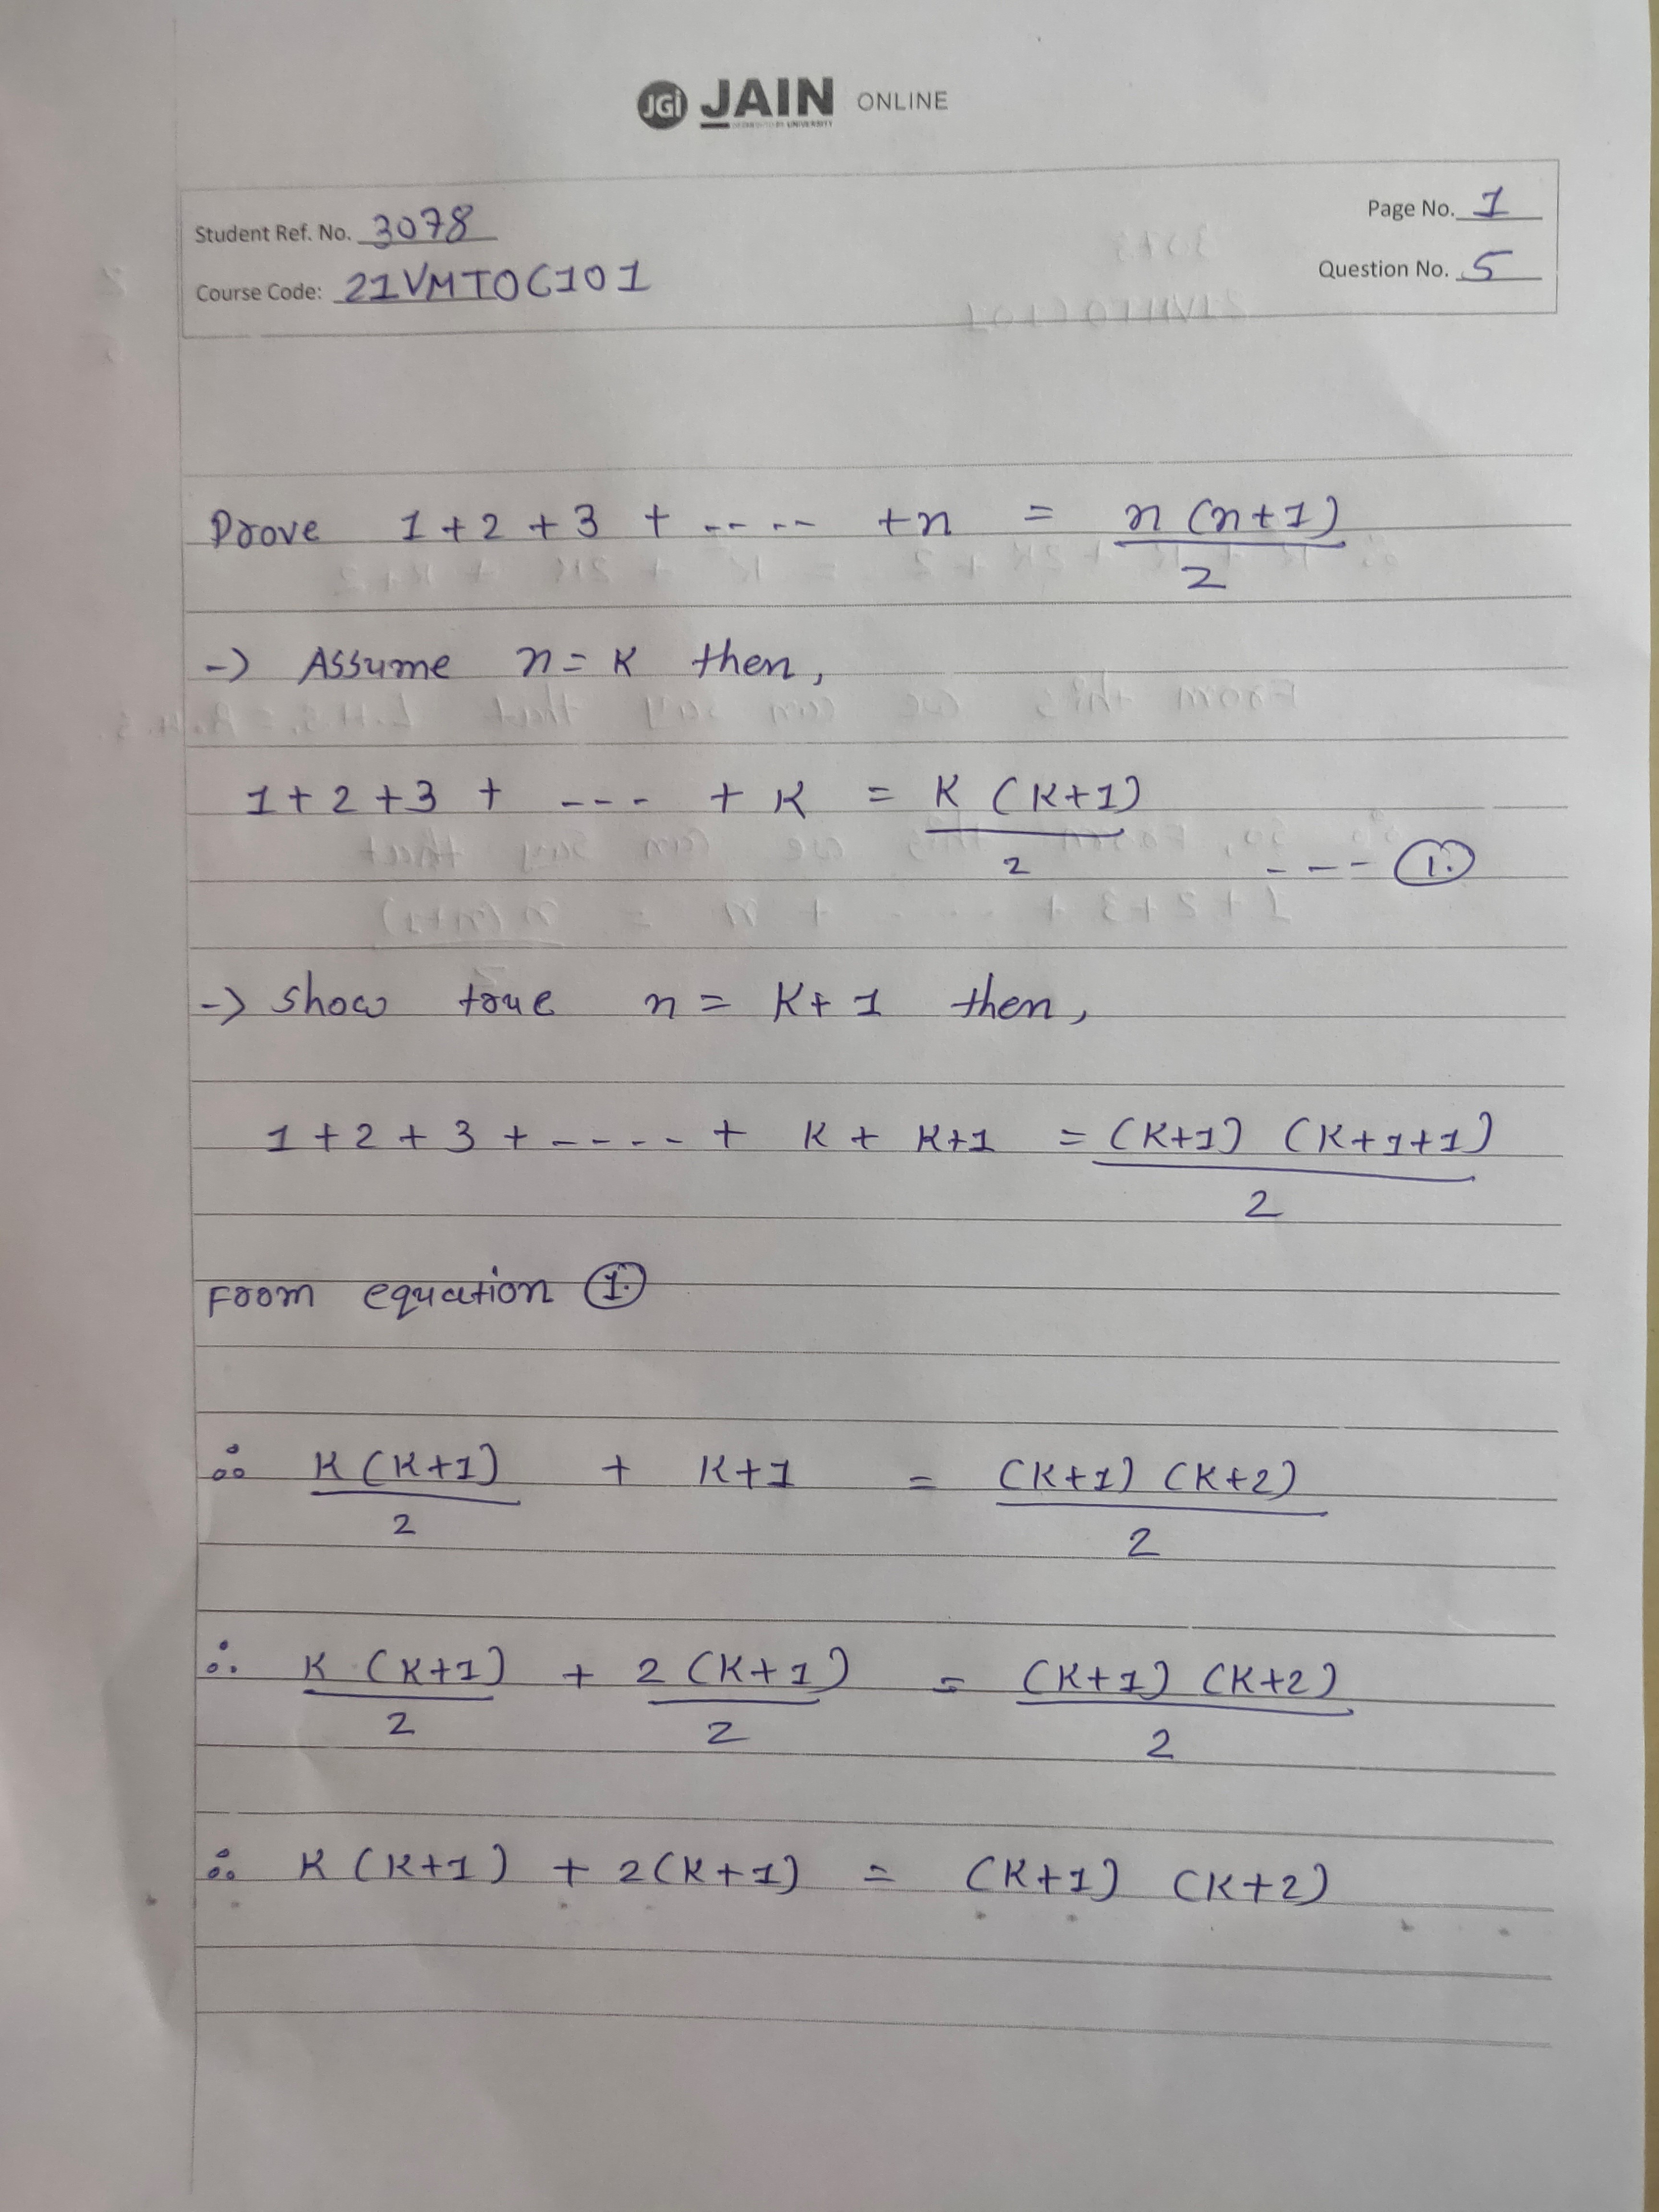 JGi JAIN ONLINE
Student Ref. No. 3078
Page No. 1
Course Code: 21VMTOC101
Question No. 5
Prove 1 + 2 + 3 + ----- + n = n (n+1) / 2
-> Assume n = K then,
1 + 2 + 3 + --- + K = K (K+1) / 2 --- 1.
-> Show true n = K + 1 then,
1 + 2 + 3 + ----- + K + K+1 = (K+1) (K+1+1) / 2
From equation 1.
∴ K (K+1) / 2 + K+1 = (K+1) (K+2) / 2
∴ K (K+1) / 2 + 2 (K+1) / 2 = (K+1) (K+2) / 2
∴ K (K+1) + 2(K+1) = (K+1) (K+2)